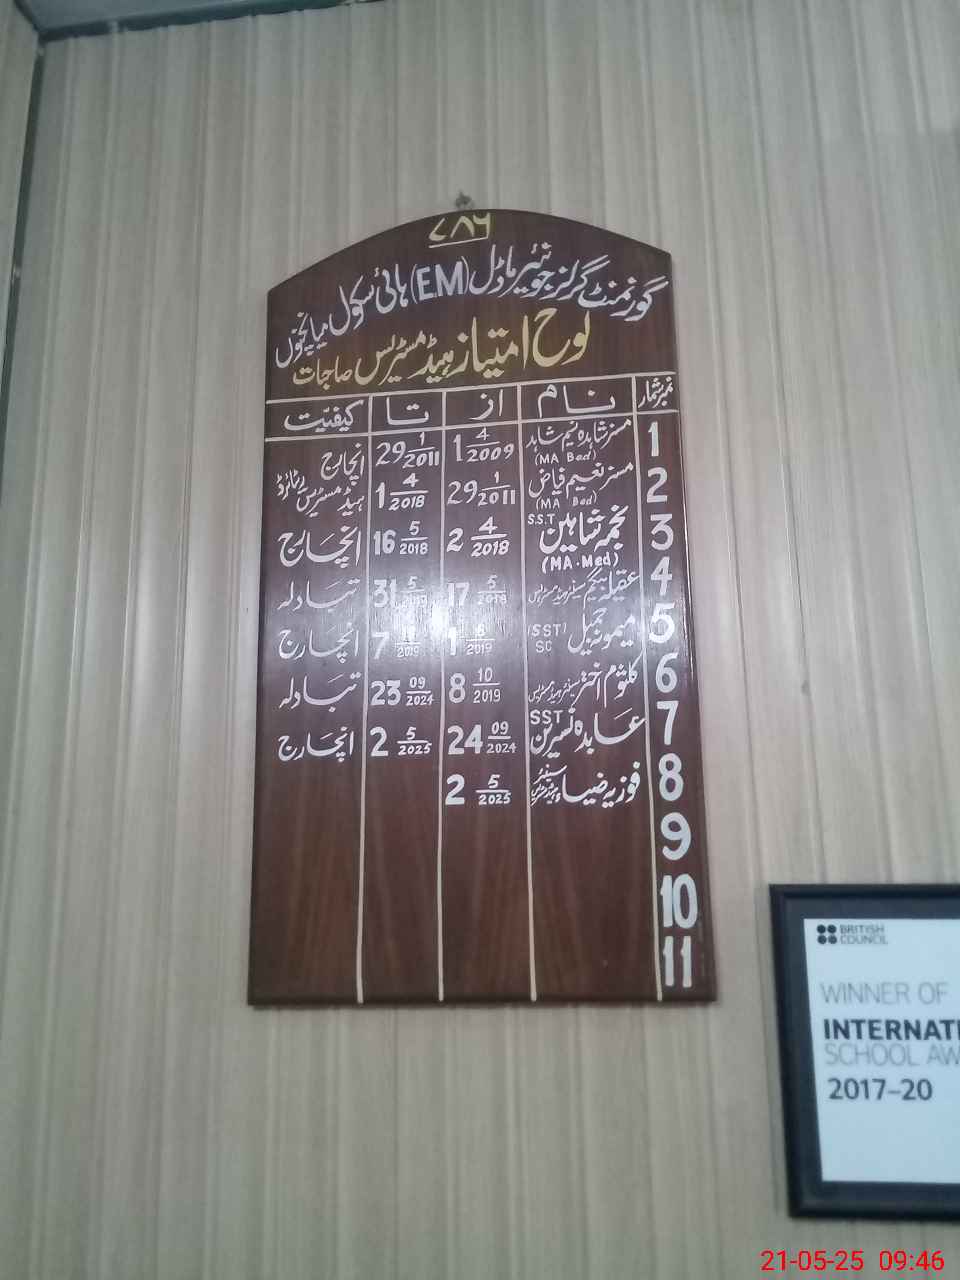 ۷۸۶
گورنمنٹ گرلز جونیئر ماڈل (EM) ہائی سکول میاں چنوں
لوح امتیاز ہیڈ مسٹریس صاحبات
نمبر شمار نام از تا کیفیت
1 مسز شاہدہ نسیم شاہد (MA Bed) 1 4/2009 29 1/2011 انچارج
2 مسز نعیم فیاض (MA Bed) 29 1/2011 1 4/2018 ہیڈ مسٹریس ریٹائرڈ
3 نجمہ شاہین S.S.T (MA.Med) 2 4/2018 16 5/2018 انچارج
4 عقیلہ بیگم سینئر ہیڈ مسٹریس 17 5/2018 31 5/2019 تبادلہ
5 میمونہ جمیل (SST) SC 1 6/2019 7 2019 انچارج
6 کلثوم اختر سینئر ہیڈ مسٹریس 8 10/2019 23 09/2024 تبادلہ
7 عابدہ نسرین SST 24 09/2024 2 5/2025 انچارج
8 فوزیہ ضیاء سینئر ہیڈ مسٹریس 2 5/2025
9
10
11
BRITISH
COUNCIL
WINNER OF
INTERNATI
SCHOOL AW
2017–20
21-05-25 09:46